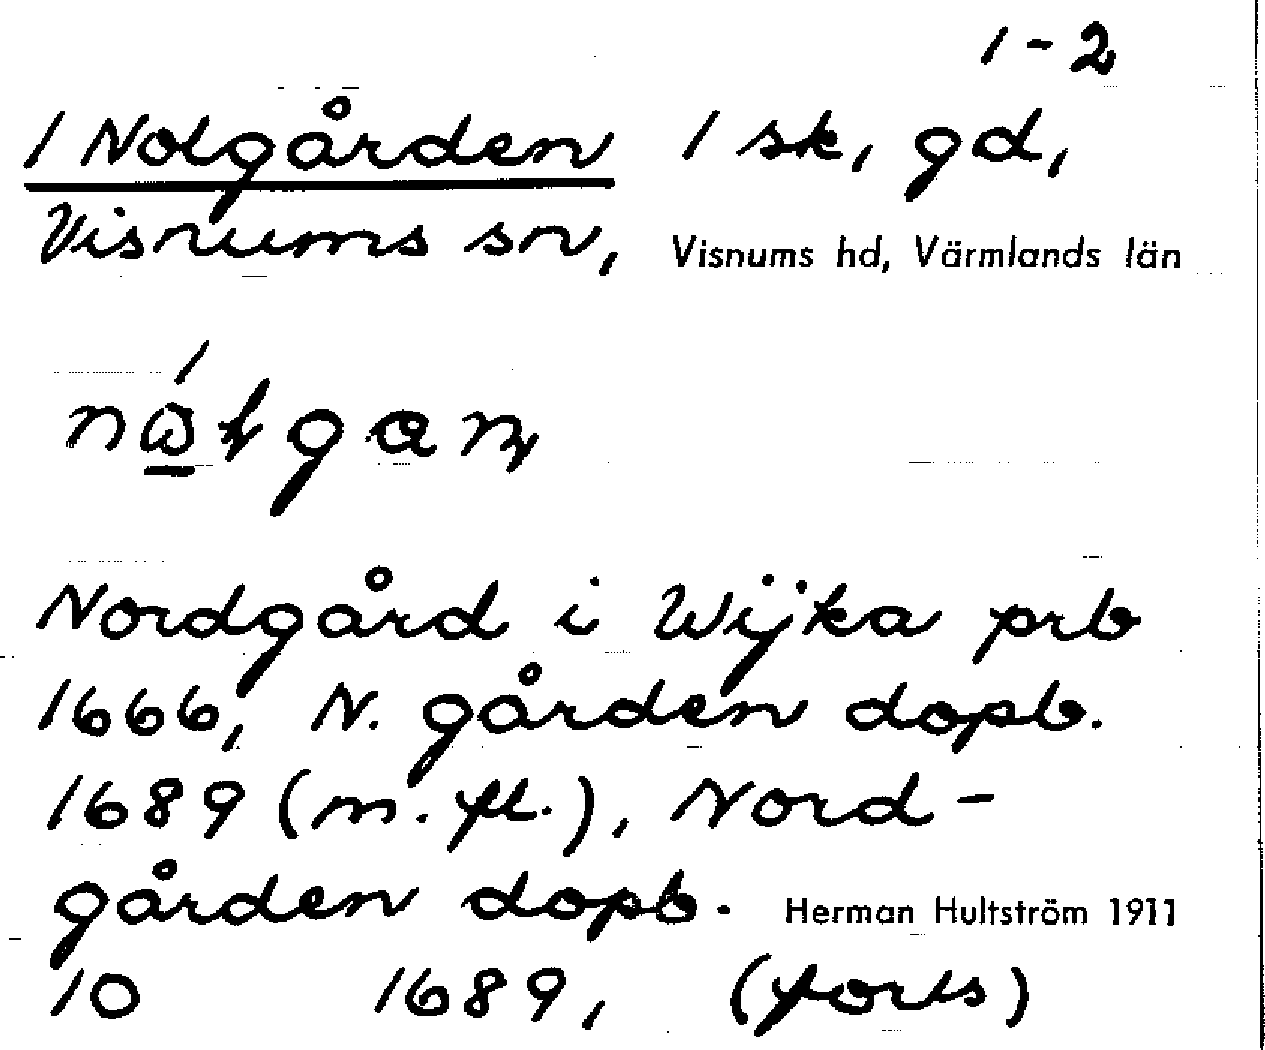 1-2
1 Nolgården 1 sk, gd,
Visnums sn, Visnums hd, Värmlands län
Nordgård i Wijka prb
1666, N. gården dopb.
1689 (m. fl.), Nord-
gården dopb. Herman Hultström 1911
10 1689, (forts)